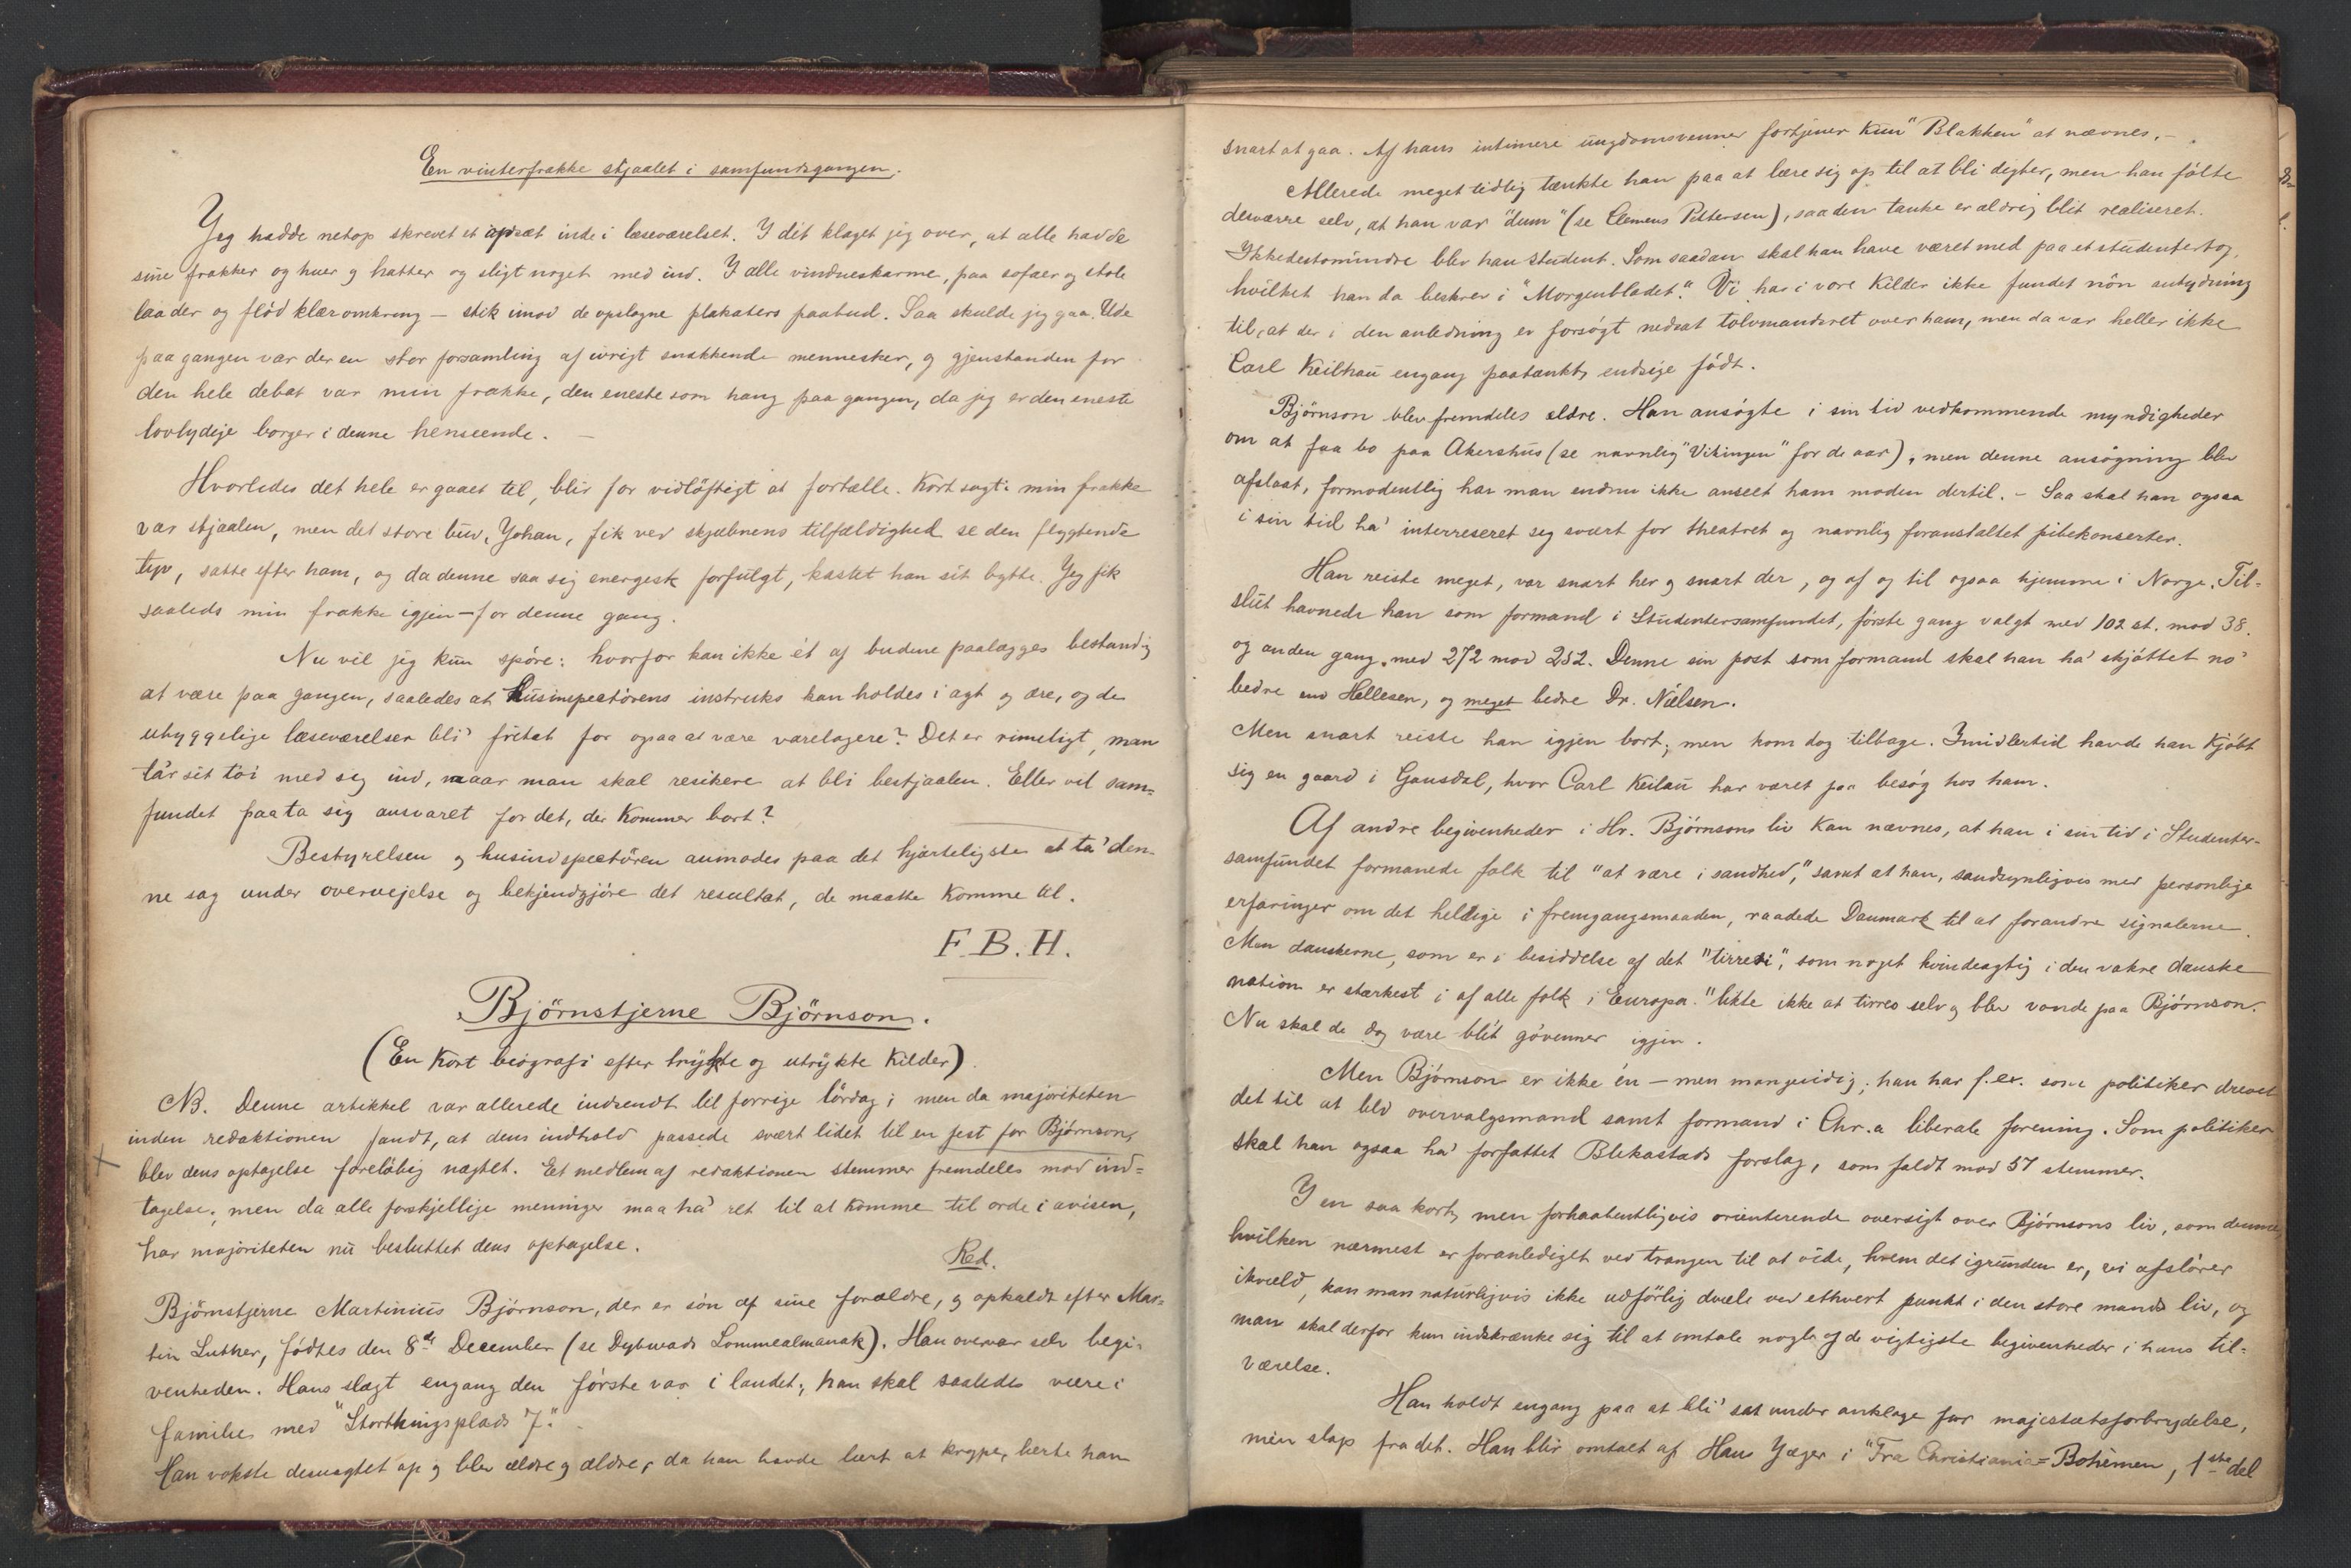 En vinterfrakke stjaalet i samfundsgangen.
Jeg hadde netop skrevet et opsæt inde i læseværelset. I dit klaget jeg over, at alle hadde
sine frakker og huer og hatter og sligt noget med ind. I alle vindueskarme, paa sofaer og stole
laa der og flöd klær omkring – stik imod de opslagne plakaters paabud. Saa skulde jeg gaa. Ude
paa gangen var der en stor forsamling af ivrigt snakkende mennesker, og gjenstanden for
den hele debat var min frakke, den eneste som hang paa gangen, da jeg er den eneste
lovlydige borger i denne henseende. –
Hvorledes det hele er gaaet til, blir for vidlöftigt at fortælle. Kort sagt: min frakke
var stjaalen, men det store bud, Johan, fik ved skjæbnens tilfældighed se den flygtende
tyv, satte efter ham, og da denne saa sig energisk forfulgt, kastet han sit bytte. Jeg fik
saaleds min frakke igjen – for denne gang.
Nu vil jeg kun spöre: hvorfor kan ikke ét af budene paalægges bestandig
at være paa gangen, saaledes at husinspectörens instruks kan holdes i agt og ære, og de
uhyggelige læseværelser bli' fritat for ogsaa at være varelagere? Det er rimeligt, man
tar sit töi med sig ind, naar man skal resikere at bli bestjaalen. Eller vil sam=
fundet paata sig ansvaret for det, der kommer bort?
Bestyrelsen og husindspectören anmodes paa det hjærteligste at ta' den-
ne sag under overvejelse og bekjendgjöre det resultat, de maatte komme til.
F.B.H.
Björnstjerne Björnson.
(En kort biografi efter trykte og utrykte kilder).
NB. Denne artikkel var allerede indsendt til forrige lördag; men da majoriteten
inden redaktionen fandt, at dens indhold passede svært lidet til en fest for Björnson,
blev dens optagelse forelöbig nægtet. Et medlem af redaktionen stemmer fremdeles mod ind=
tagelse; men da alle forskjellige meninger maa ha' ret til at komme til orde i avisen,
har majoriteten nu besluttet dens optagelse.
Red.
Björnstjerne Martinius Björnson, der er sön af sine forældre, og opkaldt efter Mar=
tin Luther, födtes den 8de December (se Dybwads Lommealmanak). Han overvar selv begi-
venheden. Hans slægt engang den förste var i landet; han skal saaledes være i
familie med "Storthingsplads 7".
Han vokste desuagtet op og blev ældre og ældre; da han havde lært at krype, lærte han
snart at gaa. Af hans intimere ungdomsvenner fortjener kun "Blakken" at nævnes. –
Allerede meget tidlig tænkte han paa at lære sig op til at bli digter, men han fölte
desværre selv, at han var "dum" (se Clemens Pettersen), saa den tanke er aldrig blit realiseret.
Ikkedestomindre blev han student. Som saadan skal han have været med paa et studentertog,
hvilket han da beskrev i "Morgenbladet". Vi har i vore kilder ikke fundet nön antydning
til, at der i den anledning er forsögt nedsat tolvmandsret over ham, men da var heller ikke
Carl Keilhau engang paatænkt, endsige födt.
Björnson blev fremdeles ældre. Han ansögte i sin tid vedkommende myndigheder
om at faa bo paa Akershus (se navnlig "Vikingen" for de aar), men denne ansögning blev
afslaat, formodentlig har man endnu ikke anseet ham moden dertil. – Saa skal han ogsaa
i sin tid ha' interreseret seg svært for theatret og navnlig foranstaltet pibekonserter.
Han reiste meget, var snart her og snart der, og af og til ogsaa hjemme i Norge. Til=
slut havnede han som formand i Studentersamfundet, förste gang valgt med 102 st. mod 38,
og anden gang med 272 mod 252. Denne sin post som formand skal han ha' skjöttet no'
bedre end Hellesen, og meget bedre Dr. Nielsen.
Men snart reiste han igjen bort; men kom dog tilbage. Imidlertid havde han kjöbt
sig en gaard i Gausdal, hvor Carl Keilau har været paa besög hos ham.
Af andre begivenheder i Hr. Björnsons liv kan nævnes, at han i sin tid i Studenter-
samfundet formanede folk til "at være i sandhed", samt at han, sandsynligvis med personlige
erfaringer om det heldige i fremgangsmaaden, raadede Danmark til at forandre signalerne.
Men danskerne, som er i besiddelse af det "tirreri", som noget kvindeagtig i den vakre danske
nation er stærkest i af alle folk i Europa." likte ikke at tirres selv og blev vonde paa Björnson.
Nu skal de dog være blit góvenner igjen.
Men Björnson er ikke én – men mangesidig; han har f. ex. som politiker drevet
det til at bli' overvalgsmand samt formand i Chr.a liberale forening. Som politiker
skal han ogsaa ha' forfattet Blekastads forslag, som faldt mod 57 stemmer.
I en saa kort, men forhaabentligvis orienterende oversigt over Björnsons liv, som denne
hvilken nærmest er foranlediget ved trangen til at vide, hvem det igrunden er, vi afslörer
ikvæld, kan man naturligvis ikke udförlig dvæle ved ethvert punkt i den store mands liv, og
man skal derfor kun indskrænke sig til at omtale nogle af de vigtigste begivenheder i hans til=
værelse.
Han holdt engang paa at bli' sat under anklage for majestætsforbrydelse,
men slap fra det. Han blir omtalt af Hans Jæger i "Fra Christiania=Bohêmen, 1ste del